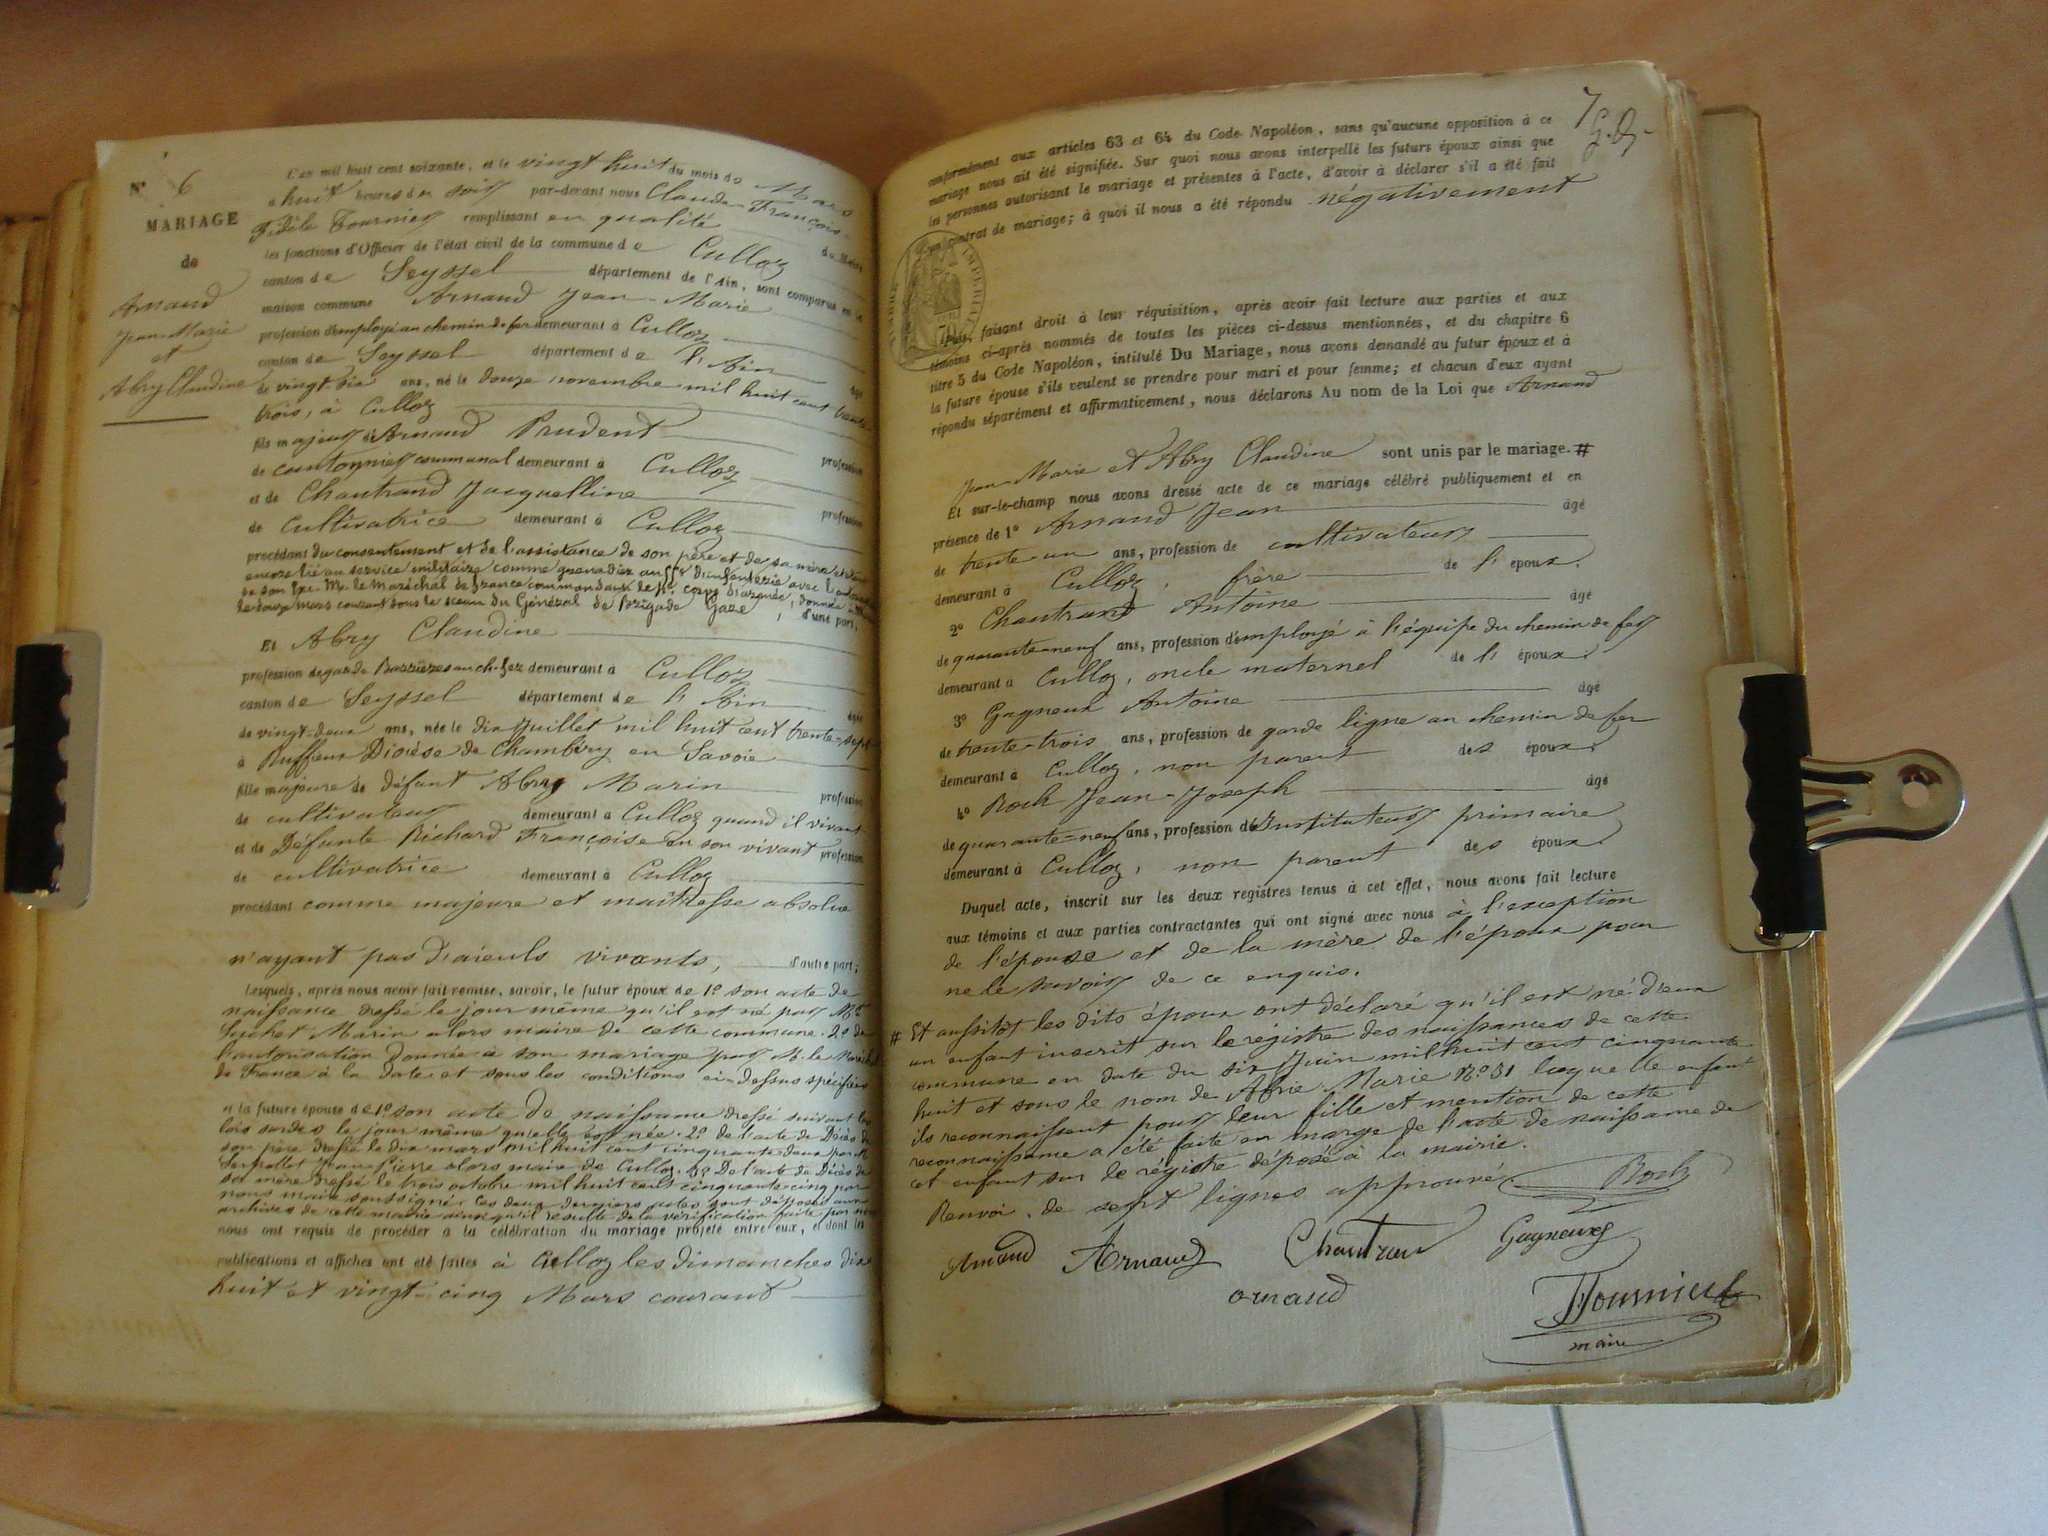 N° 6
MARIAGE
de
Arnaud
Jean-Marie
et
Abry Claudine
L'an mil huit cent soixante, et le vingt huit du mois de Mars
à huit heures du soir par-devant nous Claude-François-
Fidèle Fournier remplissant en qualité de Maire
les fonctions d'Officier de l'état civil de la commune de Culloz
canton de Seyssel département de l'Ain, sont comparus en la
maison commune Arnaud Jean-Marie
profession d'employé au chemin de fer demeurant à Culloz
canton de Seyssel département de l'Ain âgé
de vingt six ans, né le douze novembre mil huit cent trente-
trois, à Culloz
fils majeur de Arnaud Prudent profession
de cantonnier communal demeurant à Culloz
et de Chautrand Jacquelline profession
de cultivatrice demeurant à Culloz
précédant du consentement et de l'assistance de son père et de sa mère et
encore lié au service militaire comme grenadier au d'infanterie avec
de son Exc. Mr. le Maréchal de France commandant le 4e. corps d'armée, donnée
le douze mars courant sous le sceau du Général de Brigade Gaze, d'une part,
Et Abry Claudine
profession de garde Barrières au ch. fer demeurant à Culloz
canton de Seyssel département de l'Ain âgée
de vingt-deux ans, née le dix Juillet mil huit cent trente-sept
à Ruffieux Diocèse de Chambéry en Savoie
fille majeure de défunt Abry Marin profession
de cultivateur demeurant à Culloz quand il vivant
et de Défunte Richard Françoise en son vivant profession
de cultivatrice demeurant à Culloz
procédant comme majeure et maîtresse absolue
n'ayant pas d'aïeuls vivants, d'autre part;
Lesquels, après nous avoir fait remise, savoir, le futur époux de 1° son acte de
naissance dressé le jour même qu'il est né par Mr.
Suchet Marin alors maire de cette commune. 2° de
l'autorisation donnée à son mariage par M. le Maréchal
de France à la date et sous les conditions ci-dessus spécifiées
et la future épouse de 1° son acte de naissance dressé suivant les
lois sardes le jour même qu'elle est née. 2° de l'acte de Décès de
son père dressé le dix mars mil huit cent cinquante-deux par M.
Serpollet Jean-Pierre alors maire de Culloz. 3° De l'acte de Décès de
sa mère dressé le trois octobre mil huit cent cinquante-cinq par
nous maire soussigné. ces deux derniers actes sont déposés aux
archives de cette mairie ainsi qu'il résulte de la vérification faite par nous
nous ont requis de procéder à la célébration du mariage projeté entre eux, et dont les
publications et affiches ont été faites à Culloz les dimanches dix
huit et vingt-cinq Mars courant
7
conformément aux articles 63 et 64 du Code Napoléon, sans qu'aucune opposition à ce
mariage nous ait été signifiée. Sur quoi nous avons interpellé les futurs époux ainsi que
les personnes autorisant le mariage et présentes à l'acte, d'avoir à déclarer s'il a été fait
un contrat de mariage; à quoi il nous a été répondu négativement
TIMBRE IMPERIAL
Puis, faisant droit à leur réquisition, après avoir fait lecture aux parties et aux
témoins ci-après nommés de toutes les pièces ci-dessus mentionnées, et du chapitre 6
titre 5 du Code Napoléon, intitulé Du Mariage, nous avons demandé au futur époux et à
la future épouse s'ils veulent se prendre pour mari et pour femme; et chacun d'eux ayant
répondu séparément et affirmativement, nous déclarons Au nom de la Loi que Arnaud
Jean Marie et Abry Claudine sont unis par le mariage. #
Et sur-le-champ nous avons dressé acte de ce mariage célébré publiquement et en
présence de 1° Arnaud Jean âgé
de trente-un ans, profession de cultivateur
demeurant à Culloz, frère de l'époux.
2° Chautrand Antoine âgé
de quarante-neuf ans, profession d'employé à l'équipe du chemin de fer
demeurant à Culloz, oncle maternel de l'époux.
3° Gagneux Antoine âgé
de trente-trois ans, profession de garde ligne au chemin de fer
demeurant à Culloz, non parent des époux.
4° Roch Jean-Joseph âgé
de quarante-neuf ans, profession d'Instituteur primaire
demeurant à Culloz, non parent des époux.
Duquel acte, inscrit sur les deux registres tenus à cet effet, nous avons fait lecture
aux témoins et aux parties contractantes qui ont signé avec nous à l'exception
de l'épouse et de la mère de l'époux pour
ne le savoir de ce enquis.
# Et aussitôt les dits époux ont déclaré qu'il est né d'eux
un enfant inscrit sur le régistre des naissances de cette
commune en date du six Juin mil huit cent cinquante
huit et sous le nom de Abrie Marie N° 31 laquelle enfant
ils reconnaissent pour leur fille et mention de cette
reconnaissance a été faite en marge de l'acte de naissance de
cet enfant sur le régistre déposé à la mairie.
Renvoi de sept lignes approuvé Roch
Arnaud Arnaud Chautran Gagneux
arnaud
Fournier
maire